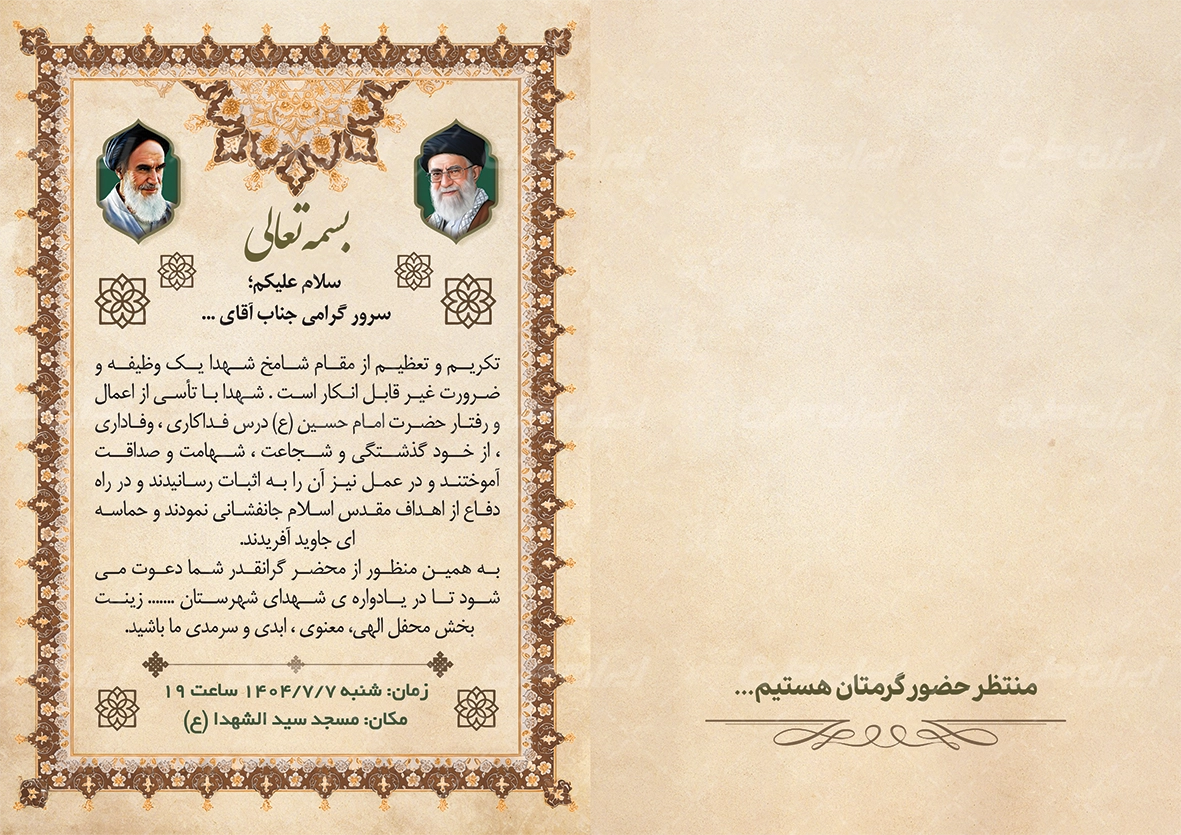 بسمه تعالی
سلام علیکم؛
سرور گرامی جناب آقای ...
تکریم و تعظیم از مقام شامخ شهدا یک وظیفه و
ضرورت غیر قابل انکار است . شهدا با تأسی از اعمال
و رفتار حضرت امام حسین (ع) درس فداکاری ، وفاداری
، از خود گذشتگی و شجاعت ، شهامت و صداقت
آموختند و در عمل نیز آن را به اثبات رسانیدند و در راه
دفاع از اهداف مقدس اسلام جانفشانی نمودند و حماسه
ای جاوید آفریدند.
به همین منظور از محضر گرانقدر شما دعوت می
شود تا در یادواره ی شهدای شهرستان ....... زینت
بخش محفل الهی، معنوی ، ابدی و سرمدی ما باشید.
زمان: شنبه ۱۴۰۴/۷/۷ ساعت ۱۹
مکان: مسجد سید الشهدا (ع)
منتظر حضور گرمتان هستیم...